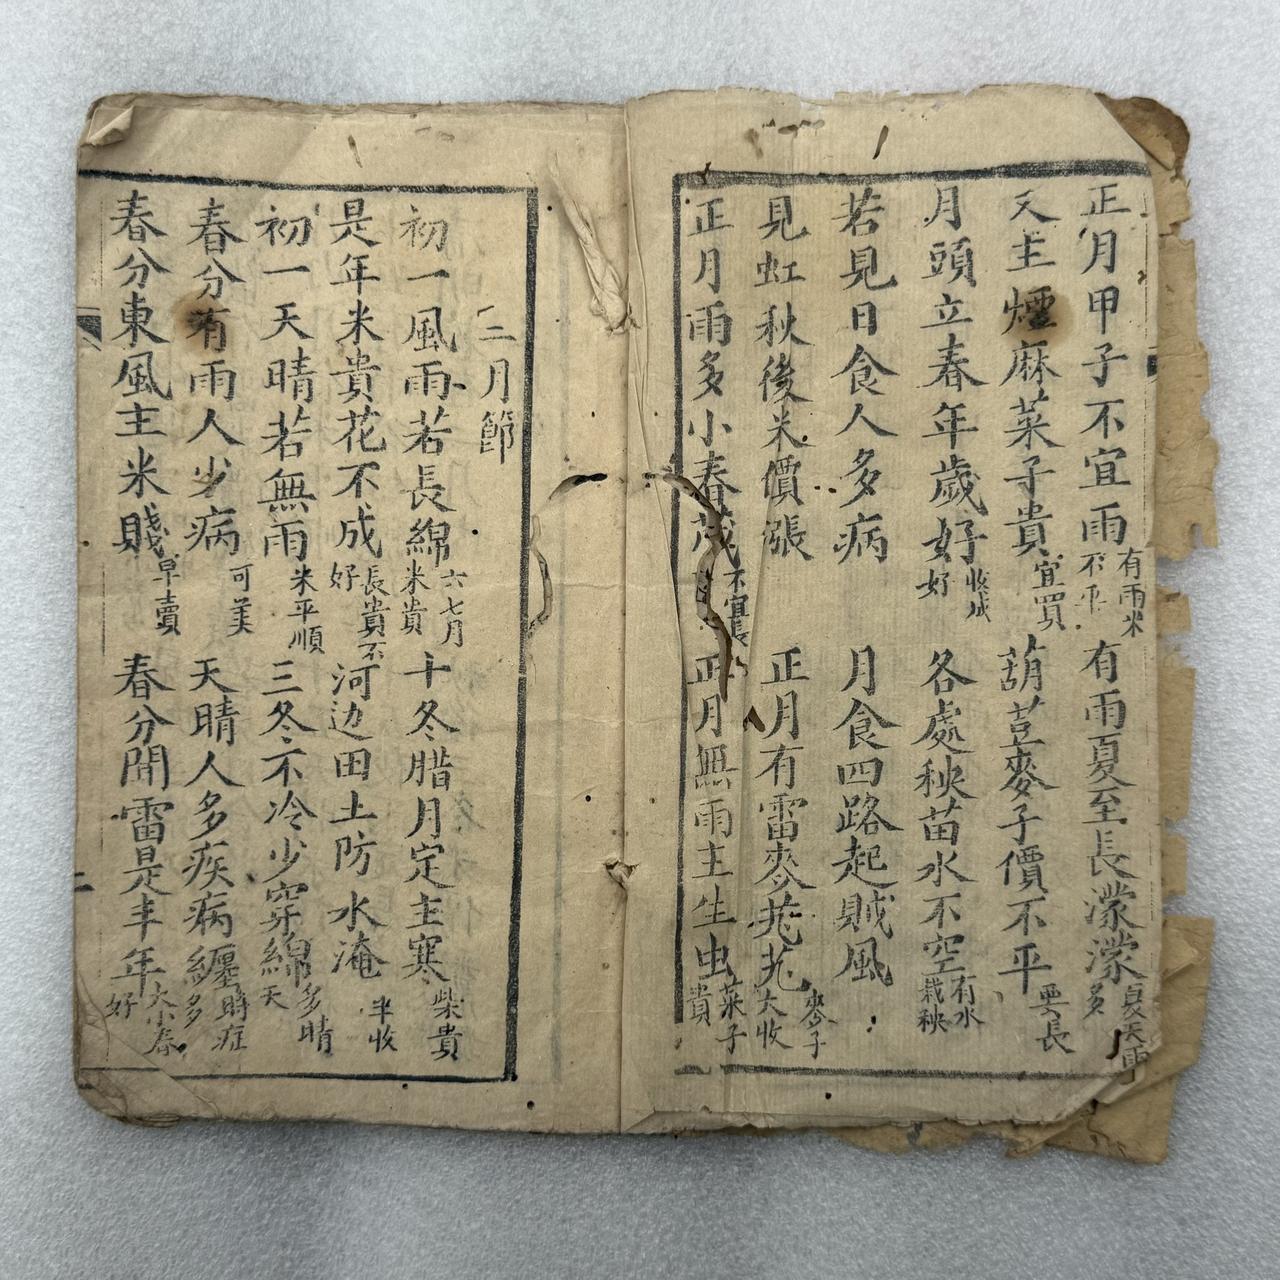 正月甲子不宜雨 有雨米不平 有雨夏至長濛濛 夏天雨多
又主煙麻菜子貴 宜買 葫荳麥子價不平 要長
月頭立春年歲好 收成好 各處秧苗水不空 有水栽秧
若見日食人多病 月食四路起賊風
見虹秋後米價漲 正月有雷麥苑苑 麥子大收
正月雨多小春茂 不宜長 正月無雨主生虫 菜子貴
二月節
初一風雨若長綿 六七月米貴 十冬腊月定主寒 柴貴
是年米貴花不成 長貴不好 河边田土防水淹 半收
初一天晴若無雨 米平順 三冬不冷少穿綿 多晴天
春分有雨人少病 可美 天晴人多疾病纏 時症多
春分東風主米賤 早賣 春分聞雷是丰年 大小春好